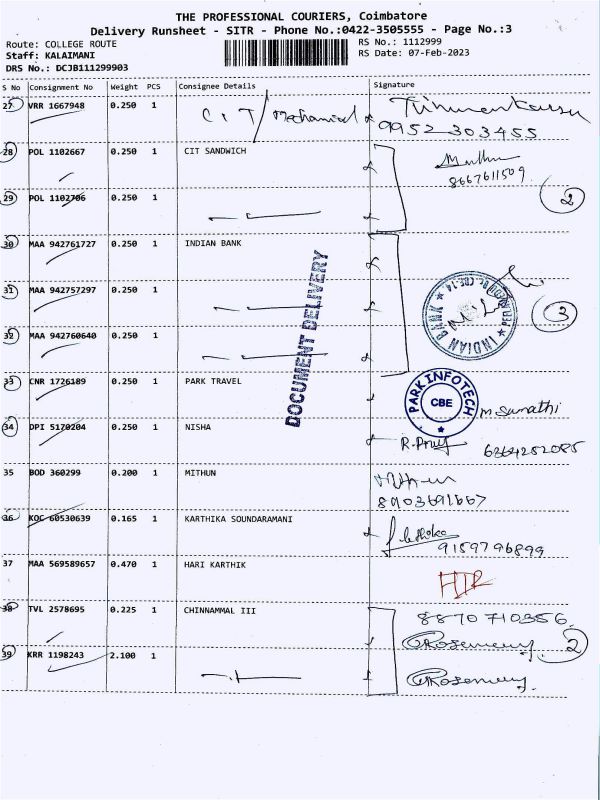 THE PROFESSIONAL COURIERS, Coimbatore
Delivery Runsheet - SITR - Phone No.:0422-3505555 - Page No.:3
Route: COLLEGE ROUTE
RS No.: 1112999
Staff: KALAIMANI
RS Date: 07-Feb-2023
DRS No.: DCJB111299903
S No Consignment No Weight PCS Consignee Details Signature
27 VRR 1667948 0.250 1 CIT/Mechanical
9952303455
28 POL 1102667 0.250 1 CIT SANDWICH
8667611509
29 POL 1102706 0.250 1
2
30 MAA 942761727 0.250 1 INDIAN BANK
31 MAA 942757297 0.250 1
INDIAN BANK
3
32 MAA 942760640 0.250 1
DOCUMENT DELIVERY
33 CNR 1726189 0.250 1 PARK TRAVEL
PARK INFOTECH
CBE
M Sumathi
34 DPI 5170204 0.250 1 NISHA
35 BOD 360299 0.200 1 MITHUN
36 KOC 60530639 0.165 1 KARTHIKA SOUNDARAMANI
9159796899
37 MAA 569589657 0.470 1 HARI KARTHIK
38 TVL 2578695 0.225 1 CHINNAMMAL III
8870710356
Rosemary
2
39 KRR 1198243 2.100 1
Rosemary